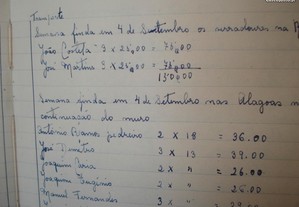 Transporte
Semana finda em 4 de Setembro os serradores na
João Cortesa 3 X 25,00 = 75,00
José Martins 3 X 25,00 = 75,00
150,00
Semana finda em 4 de Setembro nas Alagoas
continuação do muro
António Ramos pedreiro 2 X 18 = 36.00
José 3 X 13 = 39.00
Joaquim 2 X " = 26.00
Joaquim Eugénio 2 X " = 26.00
Manuel Fernandes 3 X "